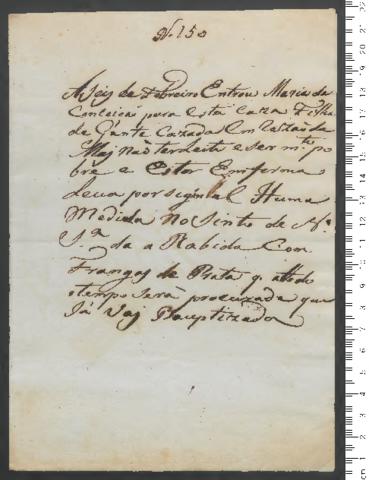 N. 150
A Seis de Febreiro Entrou Maria da
Conceicaõ para esta Caza Filha
de Gente Cazada Em Razaõ da
Maj Naõ ter Leite e ser m.to po
bre e Estar Emferma
Leva por signal Huma
Medida No Sinto de N.
S.ra da a Rabida Com
Frangas de Prata q. a todo
otempo será procurada que
Já Vaj Bauptizada